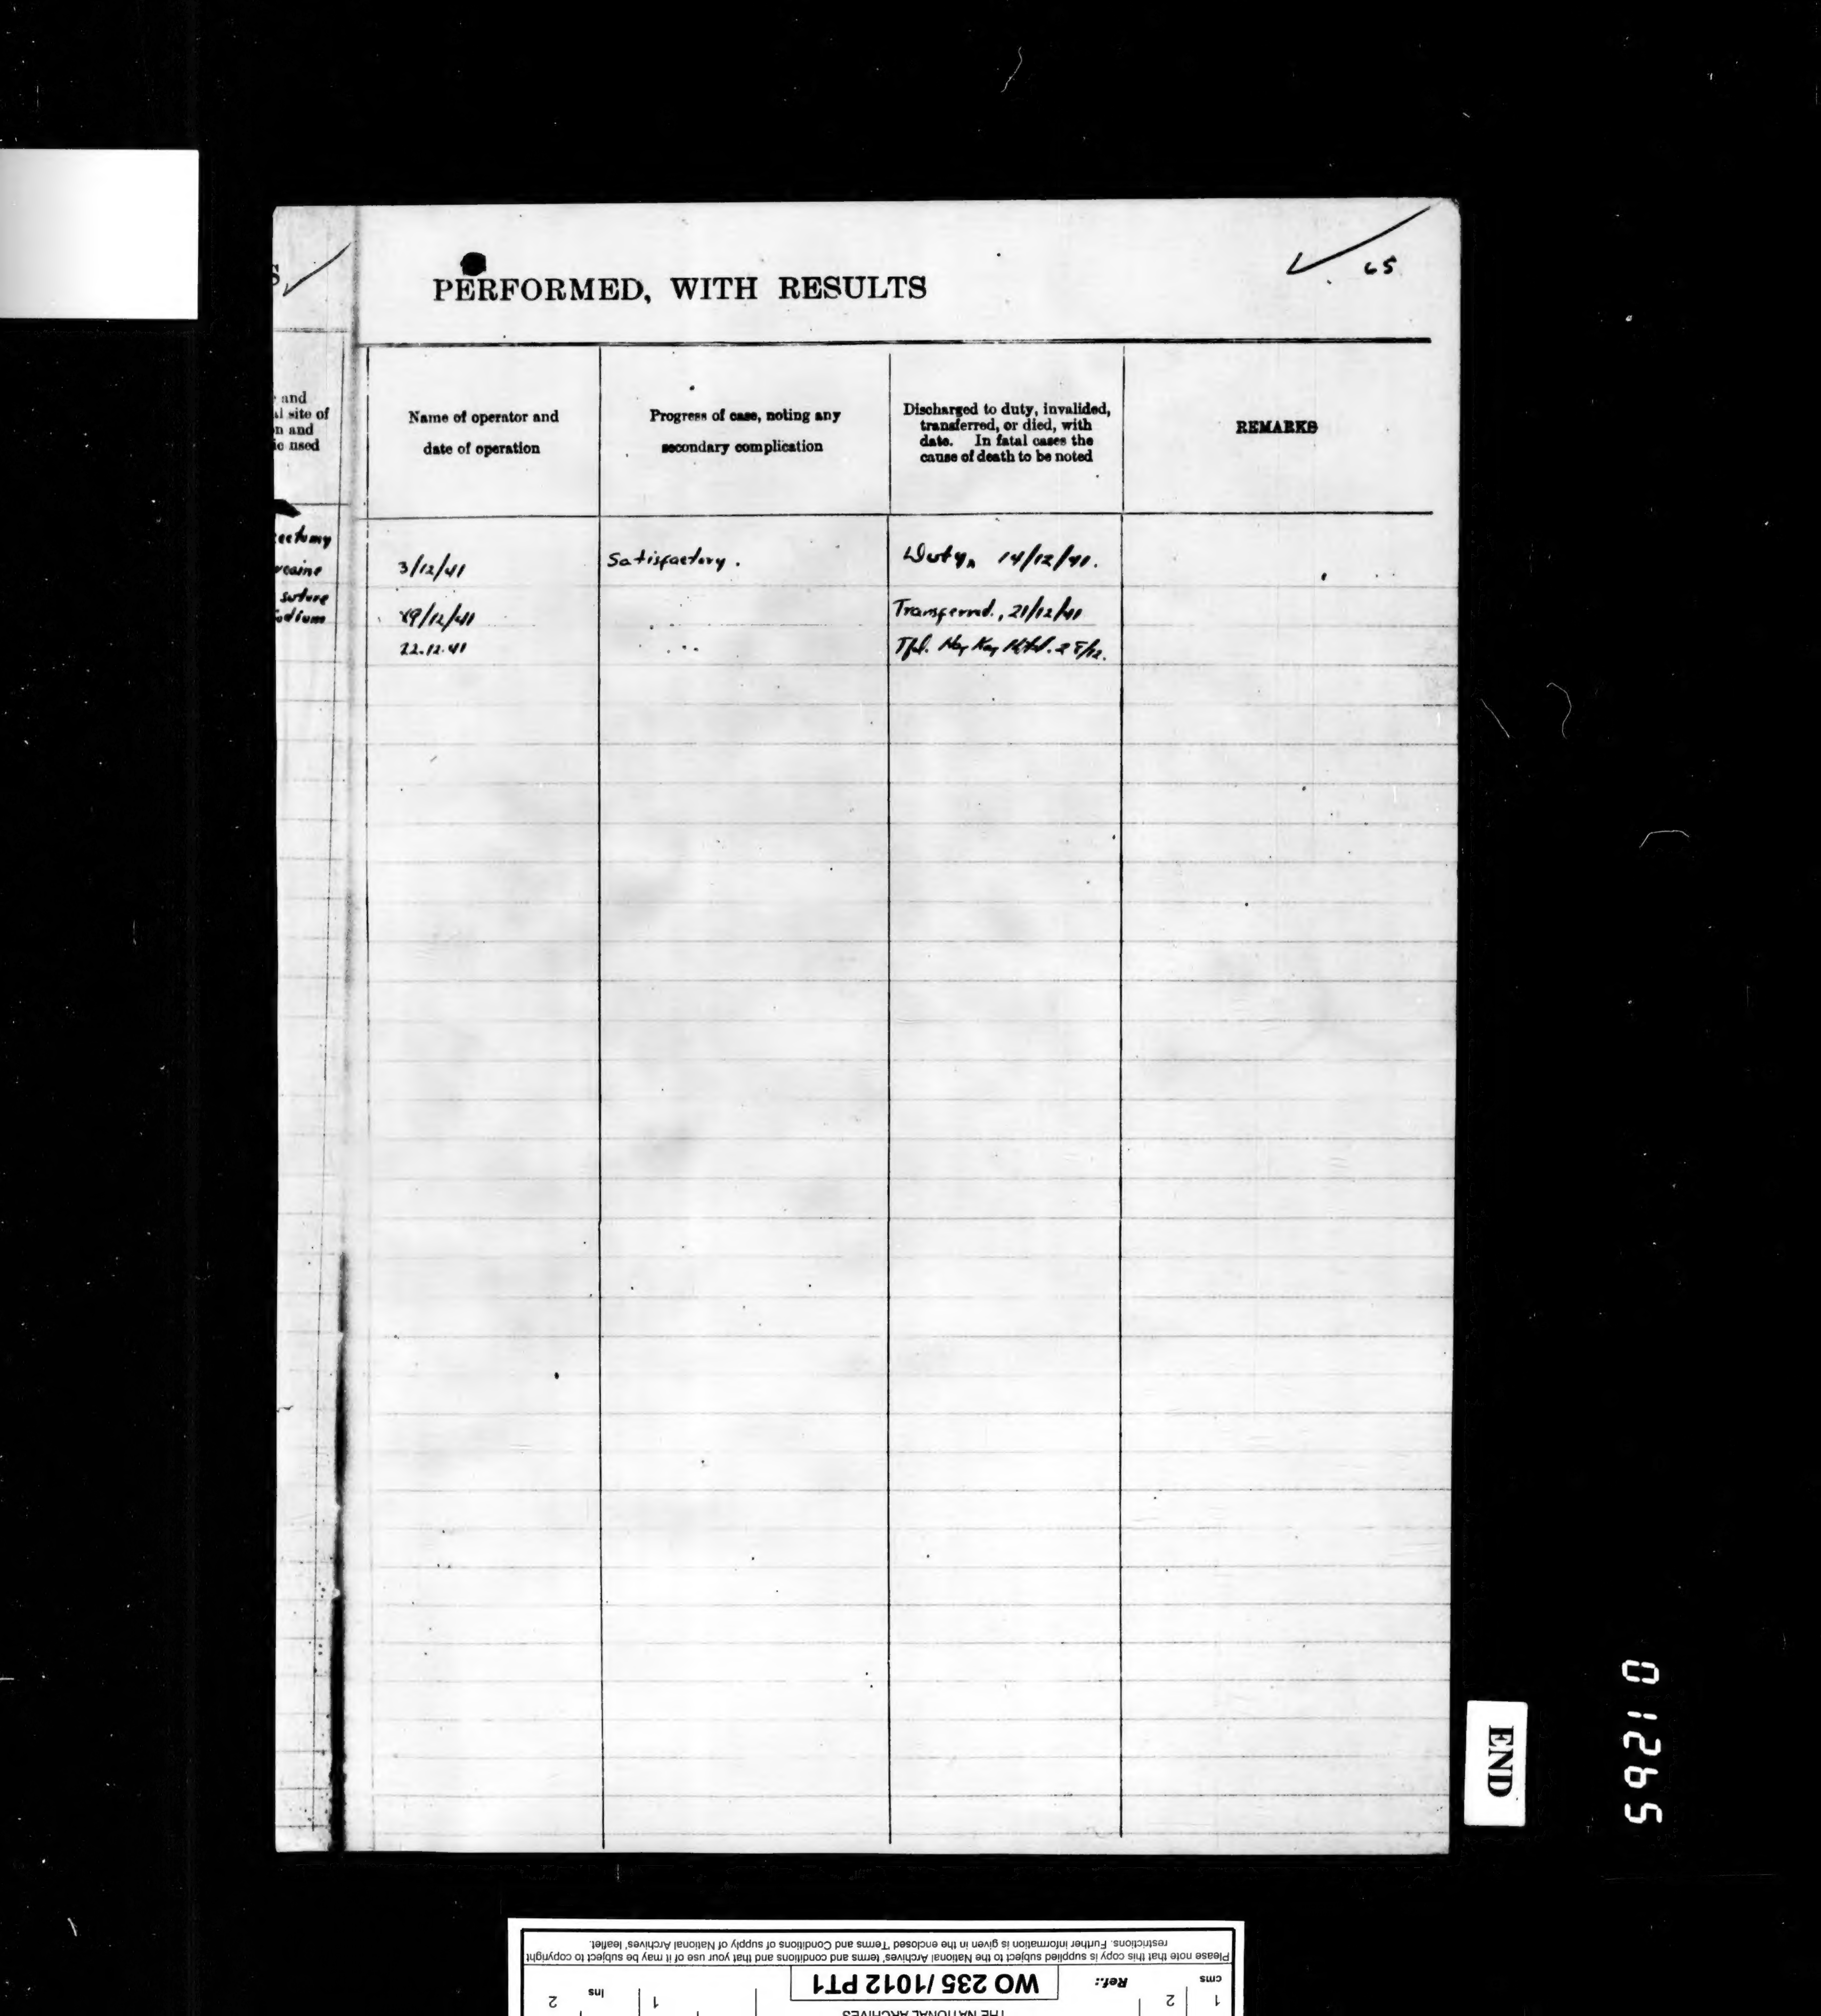 S
PERFORMED, WITH RESULTS
65
and
site of
n and
ic used
Name of operator and
date of operation
Progress of case, noting any
secondary complication
Discharged to duty, invalided,
transferred, or died, with
date. In fatal cases the
cause of death to be noted
REMARKS
ectomy
ocaine
3/12/41
Satisfactory.
Duty, 14/12/41.
suture
odium
19/12/41
Transferred., 21/12/41
22.12.41
Tfd.
END
01265
Please note that this copy is supplied subject to the National Archives' terms and conditions and that your use of it may be subject to copyright
restrictions. Further information is given in the enclosed 'Terms and Conditions of supply of National Archives' leaflet.
cms
Ref.:
WO 235 / 1012 PT1
ins
1
2
1
2
THE NATIONAL ARCHIVES